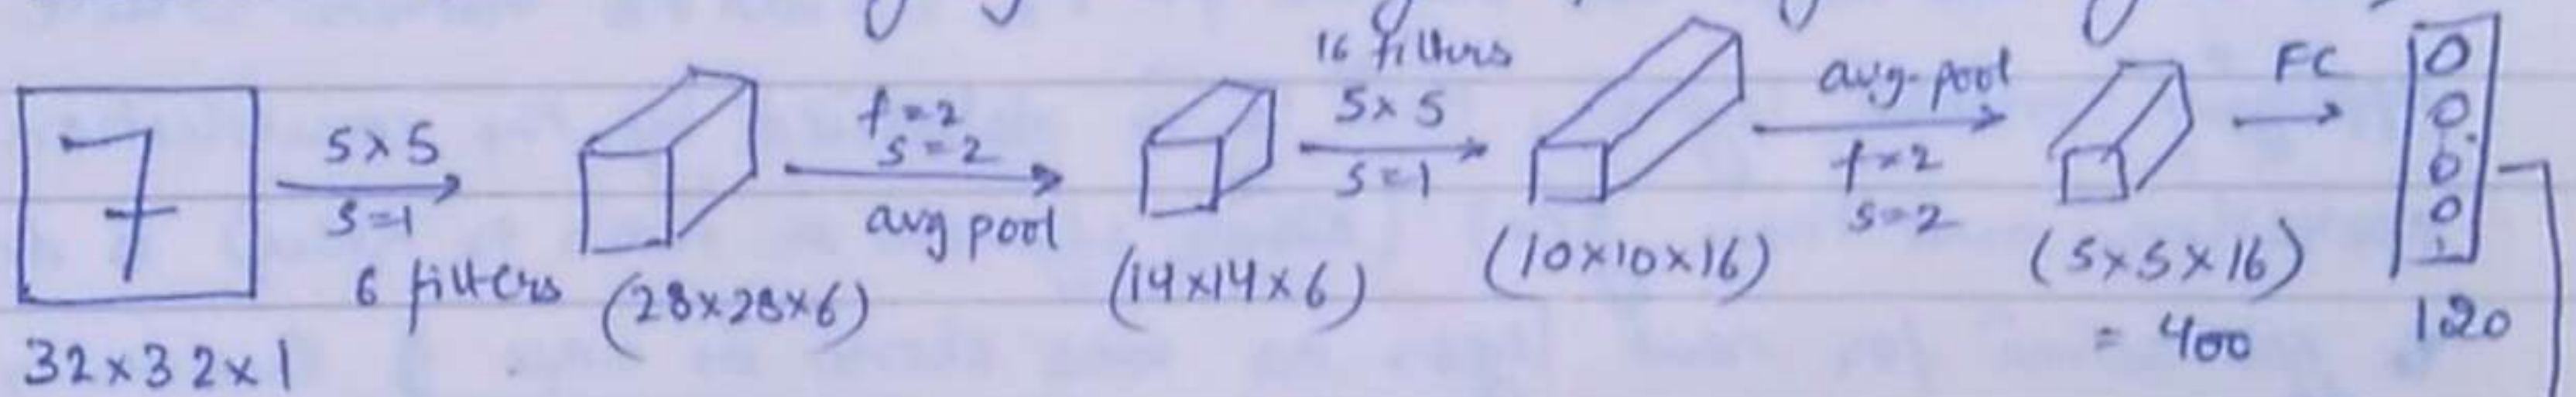 7
32x32x1
5x5
s=1
6 filters
(28x28x6)
f=2
s=2
avg pool
(14x14x6)
16 filters
5x5
s=1
(10x10x16)
avg-pool
f=2
s=2
(5x5x16)
= 400
FC
120